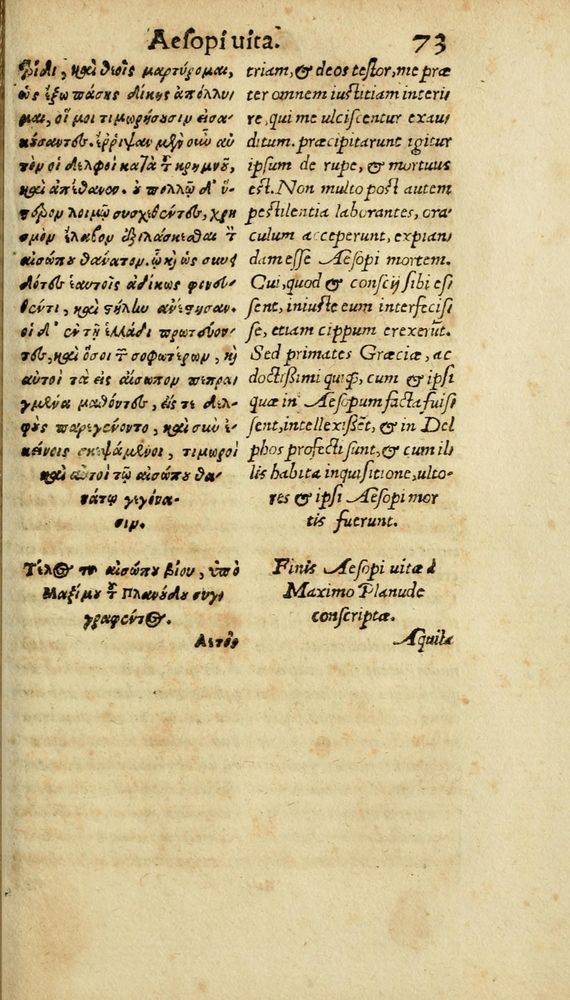 Aesopi uita. 73
ρίδι, καὶ θεοὺς μαρτύρομαι,
ὡς ἔξω πάσης δίκης ἀπόλλυ
μαι, οἵ μοι τιμωρήσουσιν εἰσα-
κούσαντες. ἔρριψαν μὲν οὖν αὐ
τὸν οἱ δελφοὶ κατὰ τοῦ κρημνοῦ,
καὶ ἀπέθανεν. οὐ πολλῷ δ' ὕ-
στερον λοιμῷ συσχεθέντες, χρη
σμὸν ἔλαβον ἐξιλάσκεσθαι τὸν
αἰσώπου θάνατον. ᾧ καὶ ὡς συνει
δότες ἑαυτοῖς ἀδίκως φονευ-
θέντι, καὶ στήλην ἀνέστησαν.
οἱ δ' ἐν τῇ ἑλλάδι πρωτεύον-
τες, καὶ ὅσοι τῶν σοφωτέρων, καὶ
αὐτοὶ τὰ εἰς αἴσωπον πεπραγ
γμένα μαθόντες, εἴς τε δελ-
φοὺς παρεγένοντο, καὶ σὺν ἐ-
κείνοις σκεψάμενοι, τιμωροὶ
καὶ αὐτοὶ τοῦ αἰσώπου θα-
νάτου γεγόνα-
σιν.
Τέλος τοῦ αἰσώπου βίου, ὑπὸ
Μαξίμου τοῦ Πλανούδου συγ
γραφέντος.
Αετὸς
triam, & deos testor, me præ
ter omnem iustitiam interi
re, qui me ulciscentur exau
ditum. præcipitarunt igitur
ipsum de rupe, & mortuus
est. Non multo post autem
pestilentia laborantes, ora-
culum acceperunt, expian
dam esse Aesopi mortem.
Cui, quod & conscij sibi es
sent, iniuste eum interfecis
se, etiam cippum erexerũt.
Sed primates Græciæ, ac
doctissimi quiq;, cum & ipsi
quæ in Aesopum facta fuis
sent, intellexissẽt, & in Del
phos profecti sunt, & cum il
lis habita inquisitione, ulto-
res & ipsi Aesopi mor
tis fuerunt.
Finis Aesopi uitæ à
Maximo Planude
conscriptæ.
Aquila